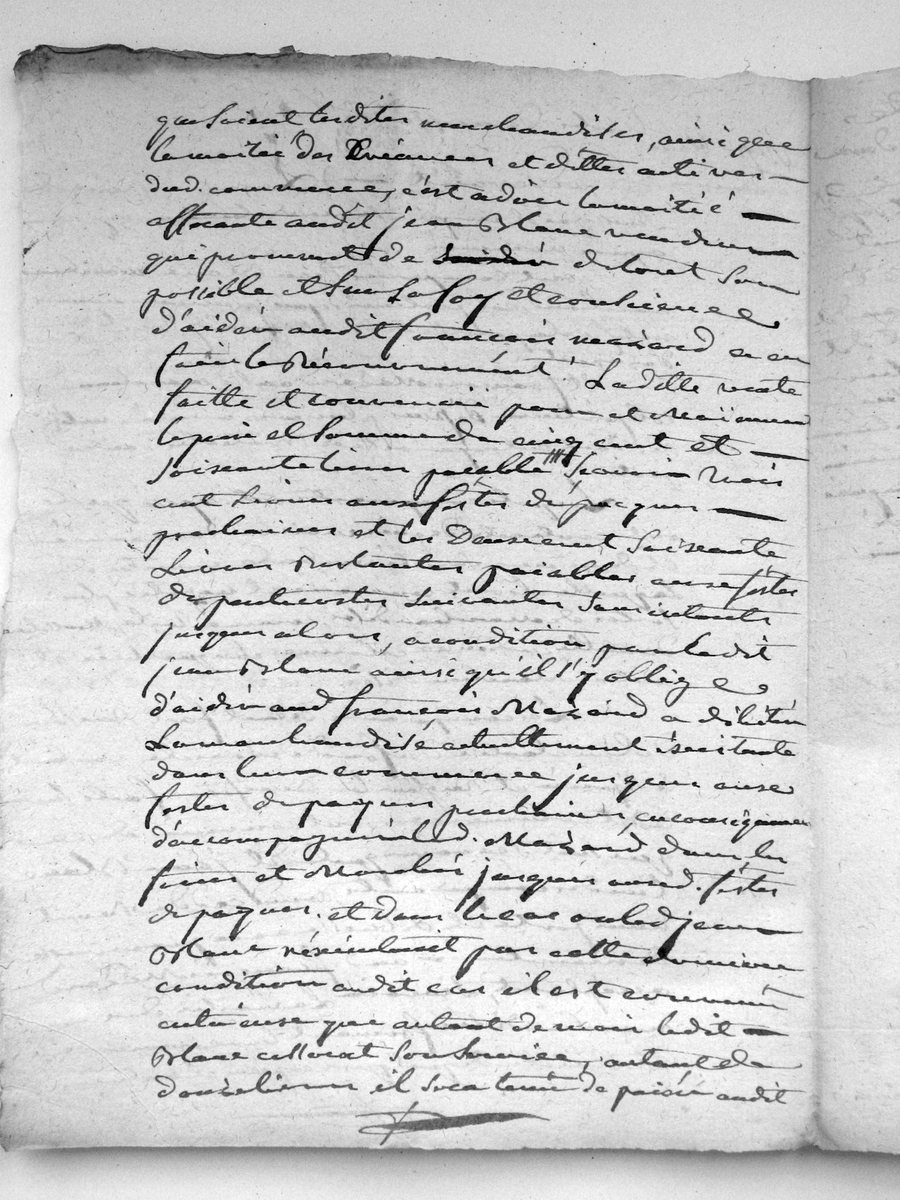 que soient lesdites marchandises, ainsi que
la moitié des Créances et dettes actives
dud. commerce, c'est a dire la moitié
afferante audit jean Blanc vendeur
qui promet de de tout son
possible et sur sa foy et consience
d'aider audit francois mazard a en
faire le Récouvrement. Laditte vente
faitte et convenüe pour et moïenant
le prix et somme de cinq cent et
soixante livres païable Scavoir trois
cent Livres aux fêtes de paques
prochaines et les Deux cent soixante
Livres Restantes païables aux festes
de pentecostes suivantes sans interets
jusques alors, a condition par ledit
jean Blanc ainsi qu'il s'y obligé
d'aider aud francois Mazard a débiter
La marchandise actuellement éxistante
dans leur commerce jusques aux
festes de paques prochaines, en conséquence
d'accompagner led. Mazard dans les
foires et Marchés jusques auxd. fêtes
de paques. et dans le cas ou led jean
Blanc réculeroit par cette derniere
condition audit cas il est convenu
entre eux que autant de mois ledit
Blanc cesserat son service, autant de
douze livres il sera tenu de païer audit